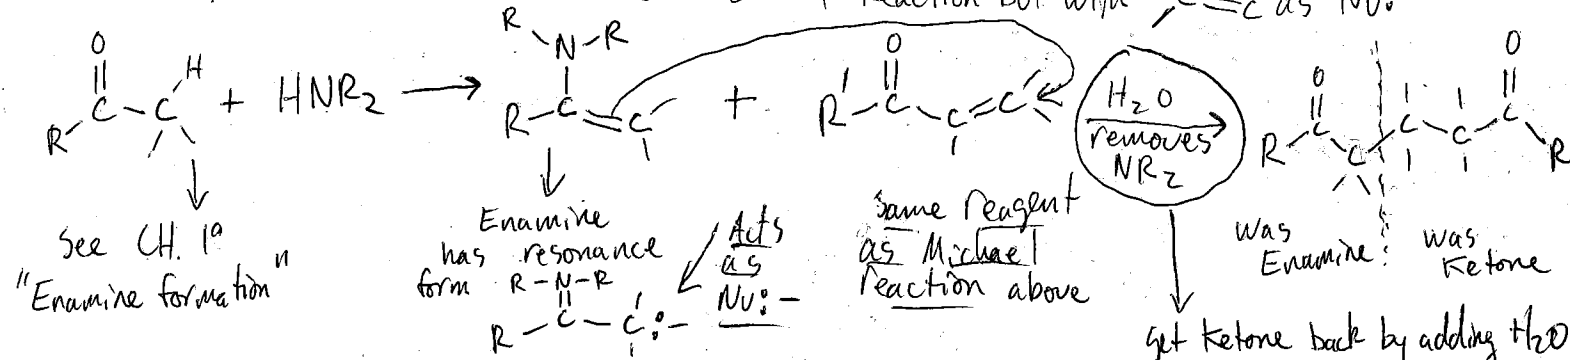 reaction but with C=C as Nu:
R N-R
O H
R C-C + HNR2 → R-C=C + R' C-C=C H2O
removes
NR2
O O
R C-C C-C-C R
See CH. 19
"Enamine formation"
Enamine
has resonance
form R-N-R
R-C-C:-
Acts
as
Nu:-
same reagent
as Michael
reaction above
was
Enamine
was
Ketone
get ketone back by adding H2O